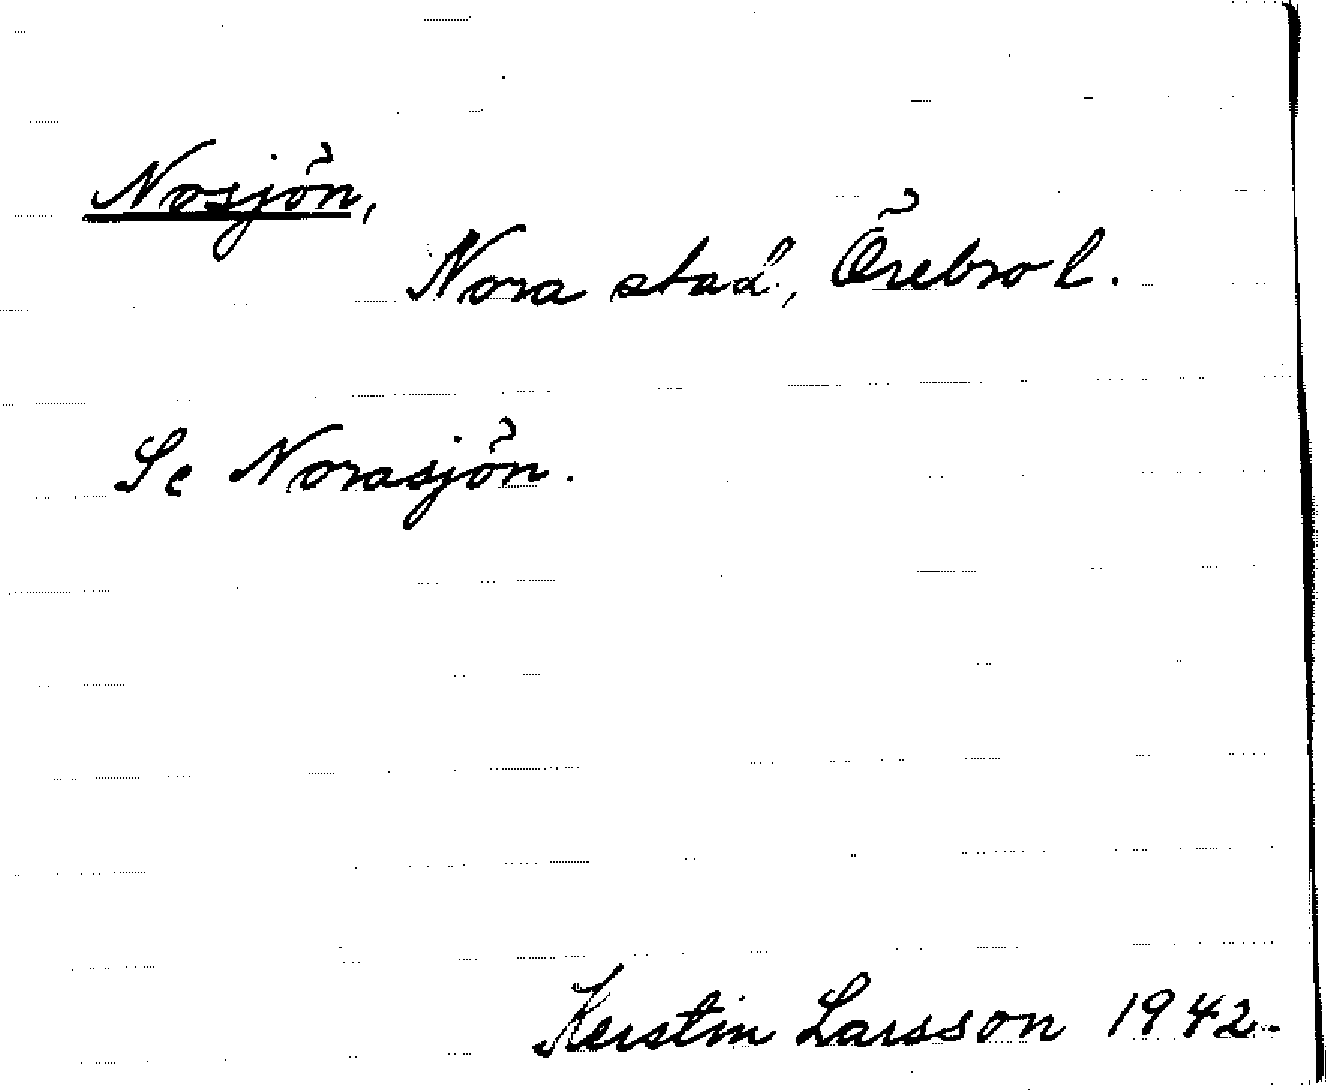 Nosjön,
Nora stad, Örebro l.
Se Norasjön.
Kerstin Larsson 1942.